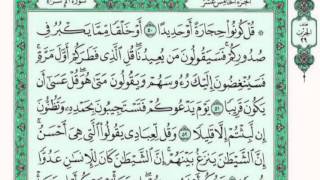 سورة الإسراء
الجزء الخامس عشر
قُلْ كُونُوا حِجَارَةً أَوْ حَدِيدًا ۝٥٠ أَوْ خَلْقًا مِمَّا يَكْبُرُ فِي
صُدُورِكُمْ فَسَيَقُولُونَ مَنْ يُعِيدُنَا قُلِ الَّذِي فَطَرَكُمْ أَوَّلَ مَرَّةٍ
فَسَيُنْغِضُونَ إِلَيْكَ رُءُوسَهُمْ وَيَقُولُونَ مَتَى هُوَ قُلْ عَسَى أَنْ
يَكُونَ قَرِيبًا ۝٥١ يَوْمَ يَدْعُوكُمْ فَتَسْتَجِيبُونَ بِحَمْدِهِ وَتَظُنُّونَ
إِنْ لَبِثْتُمْ إِلَّا قَلِيلًا ۝٥٢ وَقُلْ لِعِبَادِي يَقُولُوا الَّتِي هِيَ أَحْسَنُ
إِنَّ الشَّيْطَانَ يَنْزَغُ بَيْنَهُمْ إِنَّ الشَّيْطَانَ كَانَ لِلْإِنْسَانِ عَدُوًّا